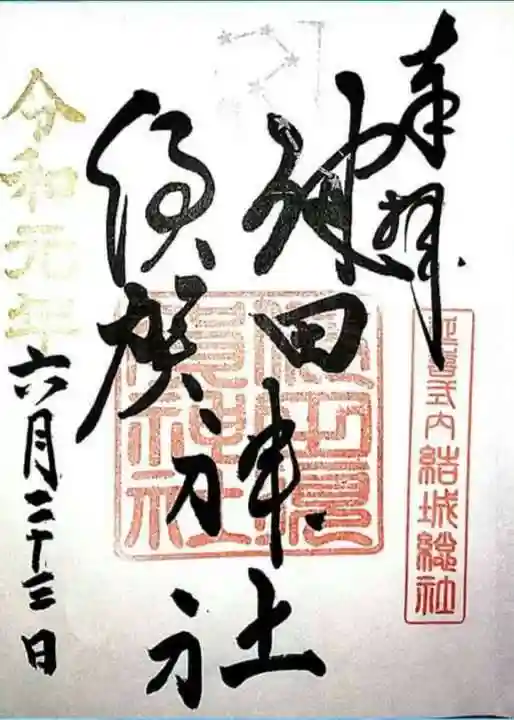 奉拝
延喜式内 結城総社
健田
須賀
神社
健田須
賀神社
令和元年
六月二十三日